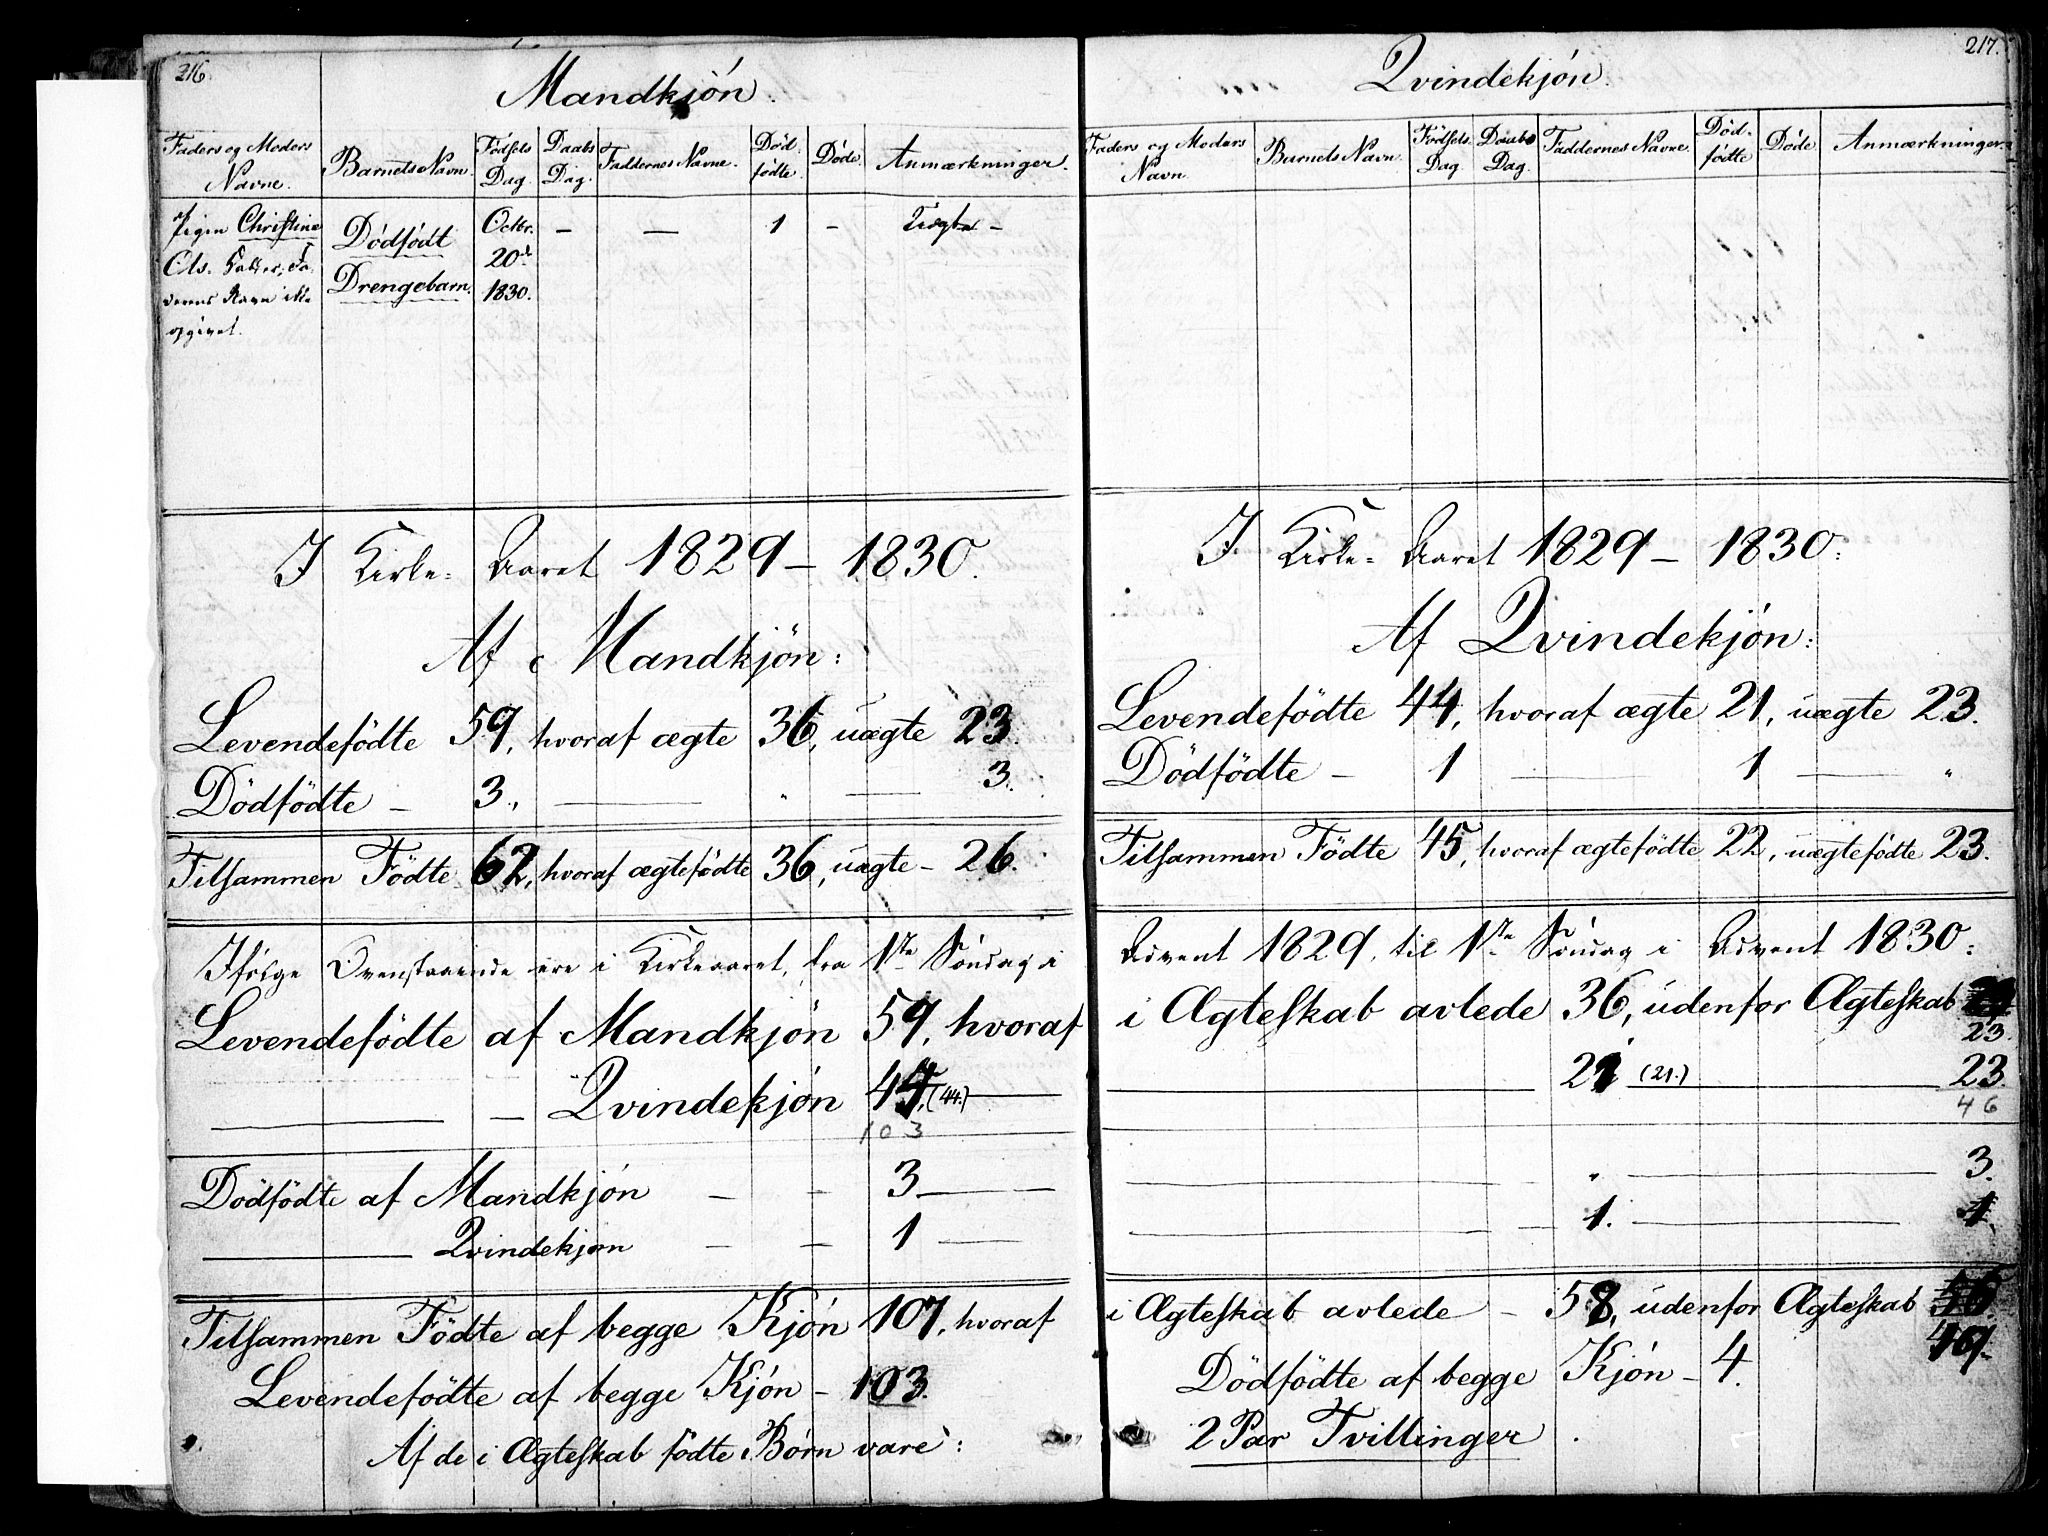 216.
Mandkjön.
Faders og Moders Navne.
Barnets Navn.
Födsels Dag.
Daabs Dag.
Faddernes Navne.
Död- födte.
Döde.
Anmærkninger.
Pigen Christine
Ols. Datter, Fa-
derens Navn ikke
opgivet.
Dödfödt
Drengebarn.
Octbr.
20de
1830.
— — 1 – Uægte –
I Kirke-Aaret 1829 – 1830.
Af Mandkjön:
Levendefödte 59, hvoraf ægte 36, uægte 23.
Dödfödte – 3., — " — 3.
Tilsammen Födte 62, hvoraf ægtefödte 36, uægte – 26.
Ifölge Ovenstaaende ere i Kirkeaaret, fra 1ste Söndag i
Levendefödte af Mandkjön 59, hvoraf
— – Qvindekjön 44, (44.) —
103
Dödfödte af Mandkjön – – 3 —
— Qvindekjøn – – 1 —
Tilsammen Födte af begge Kjön 107, hvoraf
Levendefödte af begge Kjön – 103.
Af de i Ægteskab födte Börn vare:
217.
Qvindekjön.
Faders og Moders Navn.
Barnets Navn.
Födsels Dag.
Daabs Dag.
Faddernes Navne.
Död- födte
Döde.
Anmærkninger.
I Kirke-Aaret 1829 – 1830:
Af Qvindekjön:
Levendefödte 44, hvoraf ægte 21, uægte 23.
Dödfödte – 1 — 1 — "
Tilsammen Födte 45, hvoraf ægtefödte 22, uægtefödte 23.
Advent 1829, til 1ste Söndag i Advent 1830:
i Ægteskab avlede 36, udenfor Ægteskab
23.
— 21 (21.) — 23.
46
— " — 3.
— 1. — 1.
i Ægteskab avlede – 58, udenfor Ægteskab
49.
Dödfödte af begge Kjön – 4.
2 Par Tvillinger.